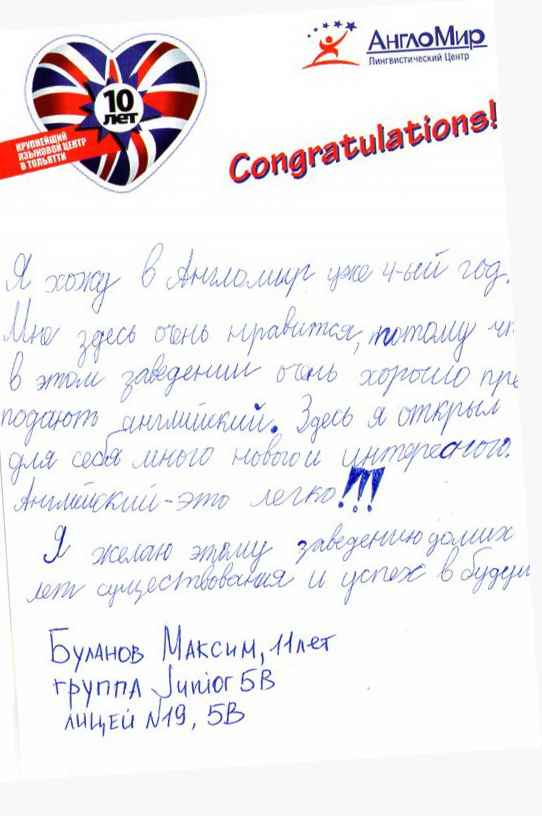 АнглоМир
Лингвистический Центр
10
лет
КРУПНЕЙШИЙ
ЯЗЫКОВОЙ ЦЕНТР
В ТОЛЬЯТТИ
Congratulations!
Я хожу в Англомир уже 4-ый год.
Мне здесь очень нравится, потому чт
в этом заведении очень хорошо пре
подают английский. Здесь я открыл
для себя много нового и интересного.
Английский - это легко!!!
Я желаю этому заведению долгих
лет существования и успех в будущ
Буланов Максим, 11 лет
группа Junior 5В
лицей №19, 5В